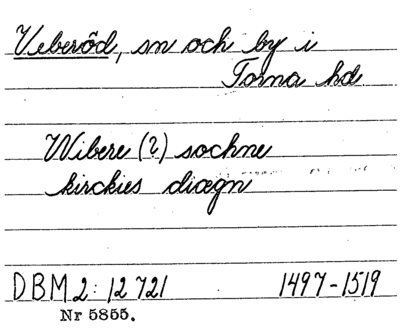 Veberöd, sn och by i
Torna hd.
Wibere (?) sochne
kirckies diægn
DBM 2: 12721 1497-1519
Nr 5855.